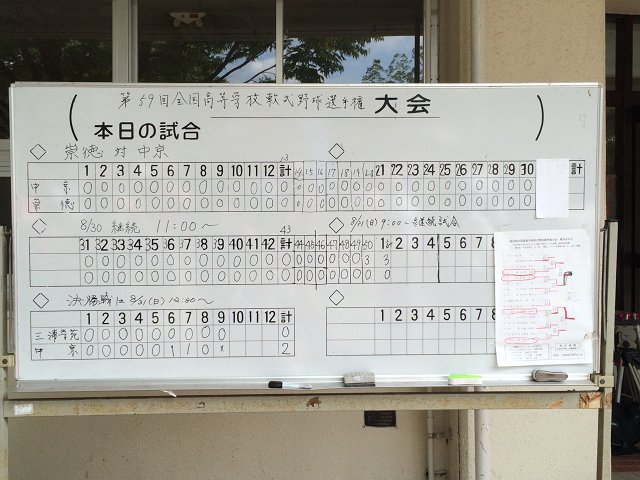 第59回全国高等学校軟式野球選手権 大会
本日の試合
崇徳 対 中京
1 2 3 4 5 6 7 8 9 10 11 12 計 14 15 16 17 18 19 20 21 22 23 24 25 26 27 28 29 30
中京 0 0 0 0 0 0 0 0 0 0 0 0 0 0 0 0 0 0 0 0 0 0 0 0 0 0 0 0 0 0
崇徳 0 0 0 0 0 0 0 0 0 0 0 0 0 0 0 0 0 0 0 0 0 0 0 0 0 0 0 0 0 0
8/30 継続 11:00～
8/31(日) 9:00～ 継続試合
31 32 33 34 35 36 37 38 39 40 41 42 43 44 45 46 47 48 49 50 計
0 0 0 0 0 0 0 0 0 0 0 0 0 0 0 0 0 0 0 3 3
0 0 0 0 0 0 0 0 0 0 0 0 0 0 0 0 0 0 0 0 0
決勝戦は 8/31(日)
1 2 3 4 5 6 7 8 9 10 11 12 計
三浦学苑 0 0 0 0 0 0 0 0 0 0
中京 0 0 0 0 0 1 1 0 x 2
1 2 3 4 5 6 7 8